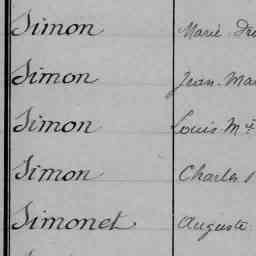 Simon Marie-
Simon Jean-Ma
Simon Louis-M
Simon Charles
Simonet Auguste